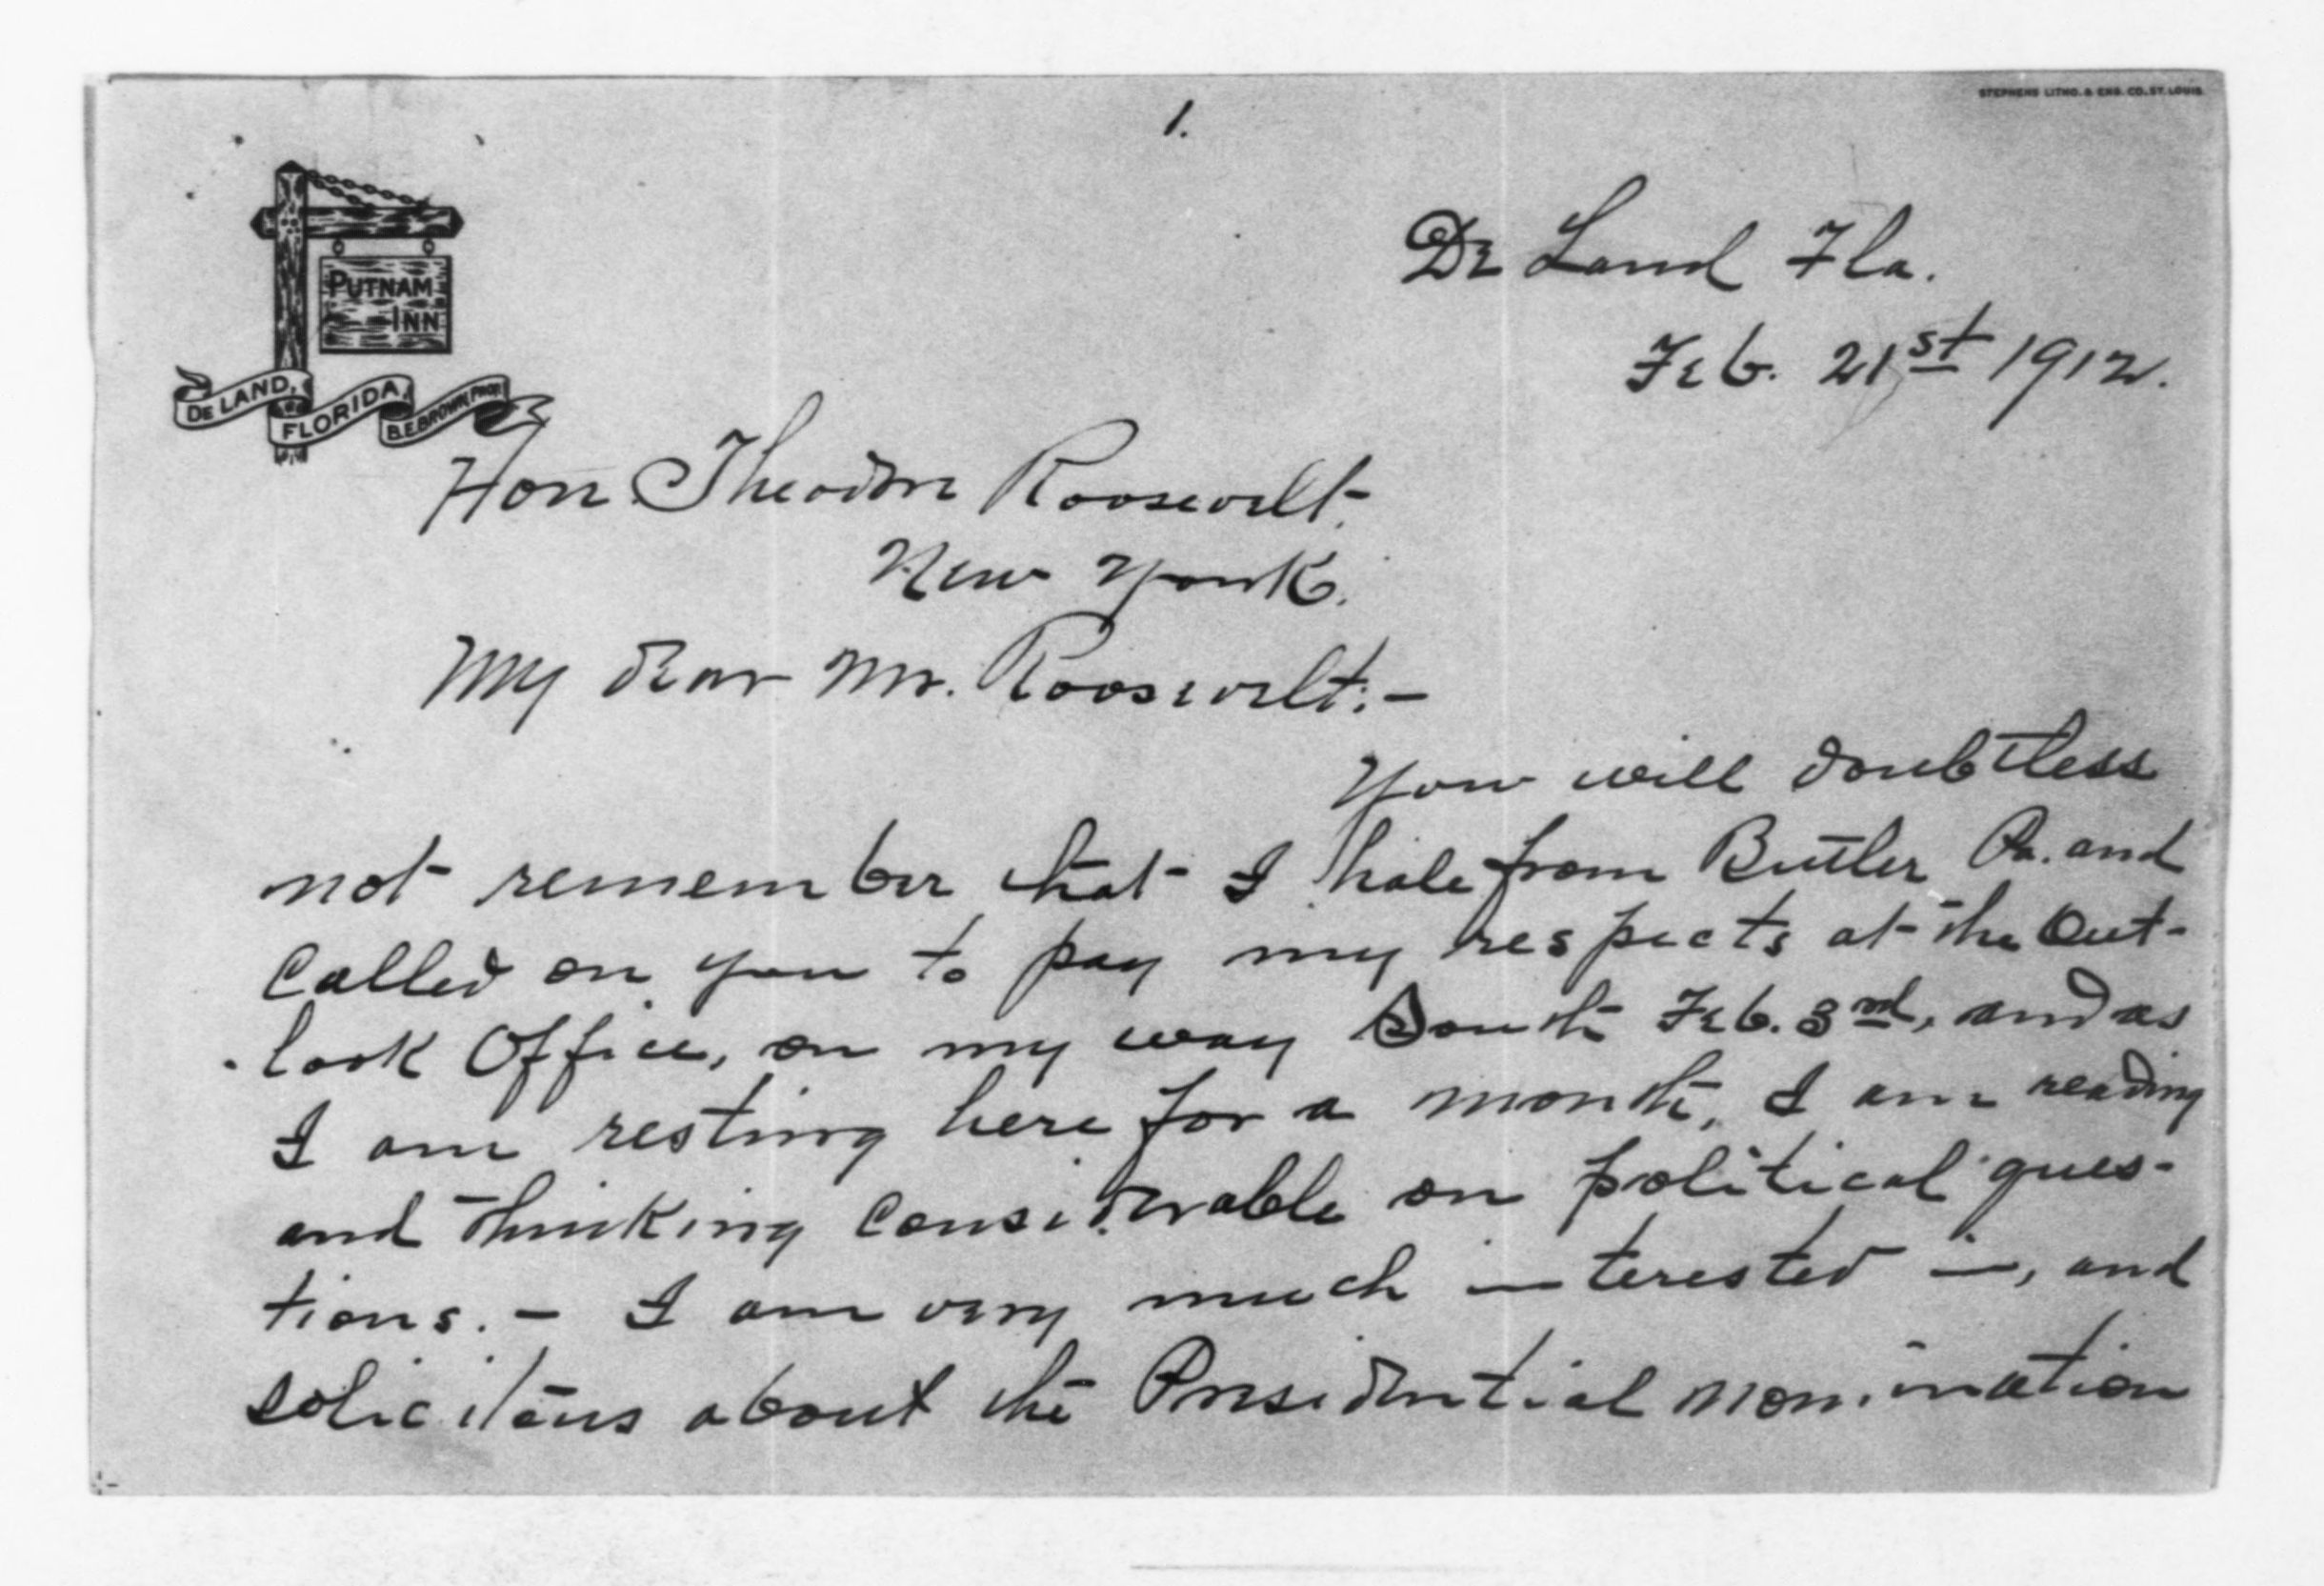 1.
STEPHENS LITHO. & ENG. CO. ST. LOUIS
PUTNAM
INN
DE LAND,
FLORIDA,
B.E. BROWN, PROP.
De Land Fla.
Feb. 21st 1912.
Hon Theodore Roosevelt.
New York.
My dear Mr. Roosevelt:-
You will doubtless
not remember that I hale from Butler Pa. and
Called on you to pay my respects at the Out-
look Office, on my way South Feb. 3rd, and as
I am resting here for a month, I am reading
and thinking Considerable on political ques-
tions. - I am very much interested in, and
solicitous about the Presidential nomination